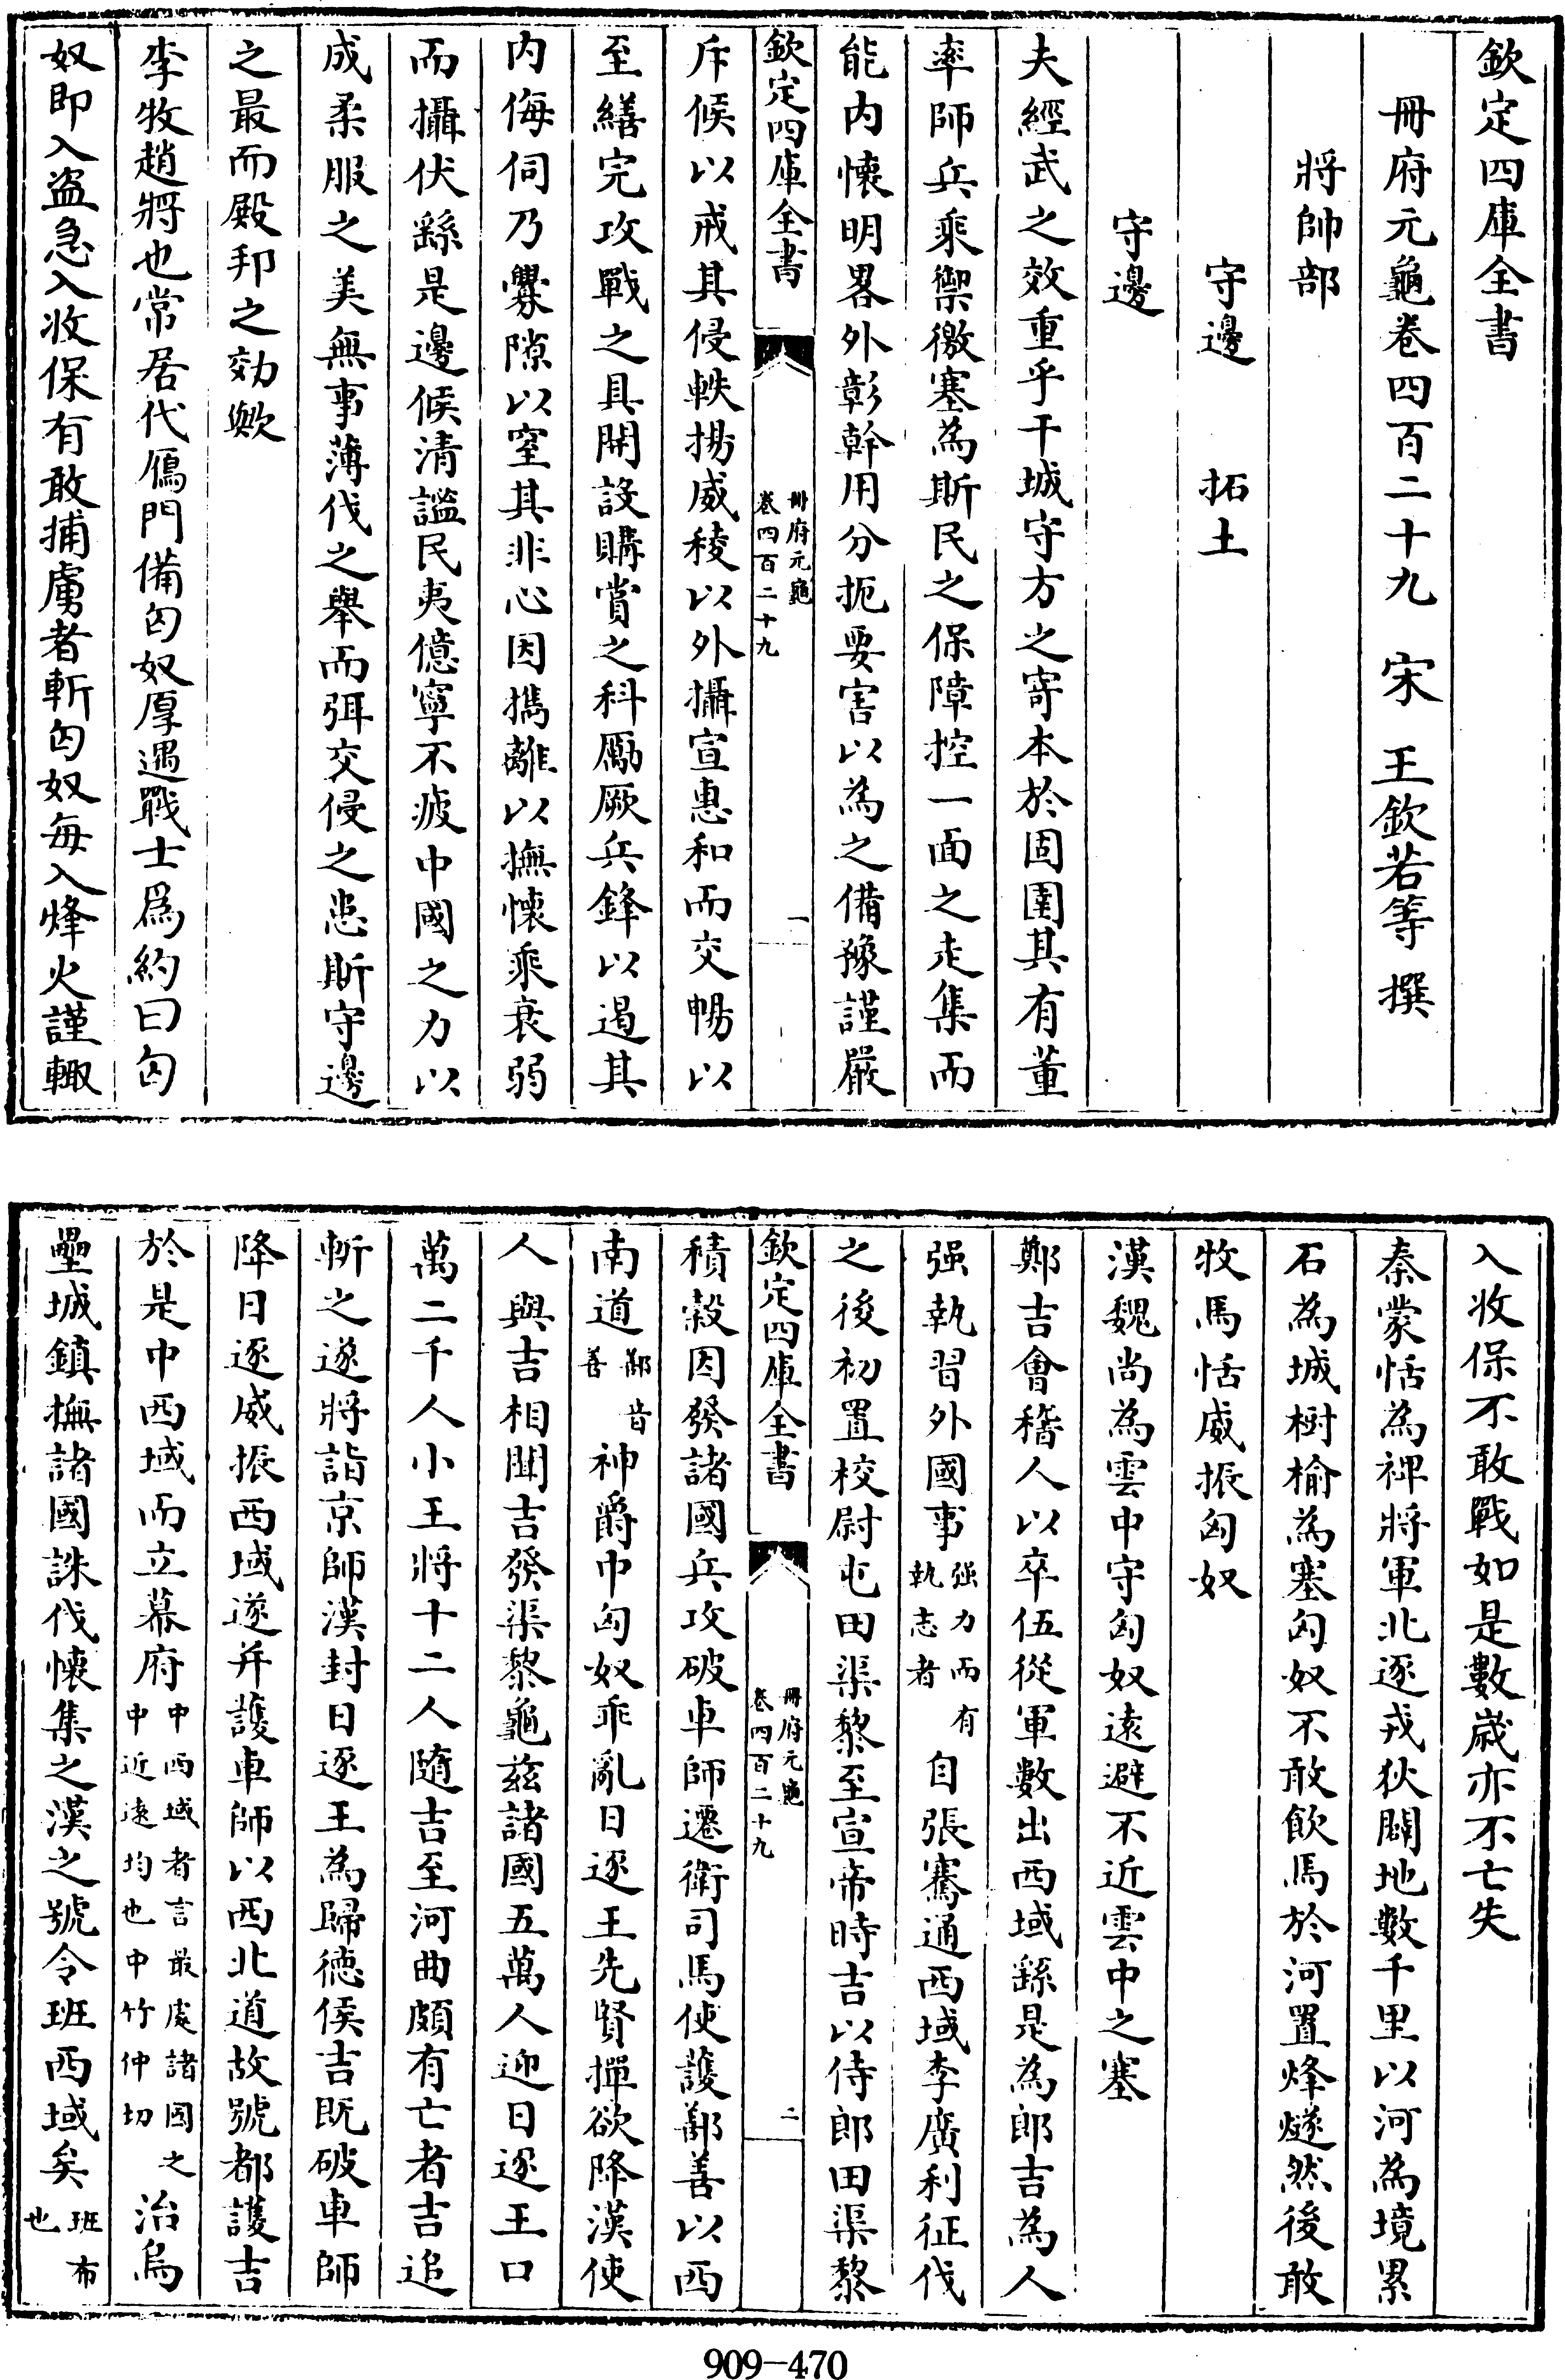 欽定四庫全書
冊府元龜卷四百二十九　宋　王欽若等　撰
將帥部
守邊　　拓土
守邊
夫經武之效重乎干城守方之寄本於固圉其有董
率師兵乘禦徼塞為斯民之保障控一面之走集而
能内懷明畧外彰幹用分扼要害以為之備豫謹嚴
欽定四庫全書
冊府元龜
卷四百二十九
一
斥候以戒其侵軼揚威稜以外攝宣惠和而交暢以
至繕完攻戰之具開設購賞之科勵厥兵鋒以遏其
内侮伺乃釁隙以窒其非心因攜離以撫懷乘衰弱
而攝伏繇是邊候清謐民夷億寧不疲中國之力以
成柔服之美無事薄伐之舉而弭交侵之患斯守邊
之最而殿邦之効歟
李牧趙將也常居代鴈門備匈奴厚遇戰士爲約曰匈
奴即入盜急入收保有敢捕虜者斬匈奴每入烽火謹輙
入收保不敢戰如是數嵗亦不亡失
秦蒙恬為禆將軍北逐戎狄闢地數千里以河為境累
石為城樹榆為塞匈奴不敢飲馬於河置烽燧然後敢
牧馬恬威振匈奴
漢魏尚為雲中守匈奴遠避不近雲中之塞
鄭吉會稽人以卒伍從軍數出西域繇是為郎吉為人
强執習外國事强力而有執志者自張騫通西域李廣利征伐
之後初置校尉屯田渠黎至宣帝時吉以侍郎田渠黎
欽定四庫全書
冊府元龜
卷四百二十九
二
積穀因發諸國兵攻破車師遷衛司馬使護鄯善以西
南道鄯音善神爵中匈奴乖亂日逐王先賢撣欲降漢使
人與吉相聞吉發渠黎龜兹諸國五萬人迎日逐王口
萬二千人小王將十二人隨吉至河曲頗有亡者吉追
斬之遂將詣京師漢封日逐王為歸徳侯吉既破車師
降日逐威振西域遂并護車師以西北道故號都護吉
於是中西域而立幕府中西域者言最處諸國之中近遠均也中竹仲切治烏
壘城鎮撫諸國誅伐懷集之漢之號令班西域矣班布也
909-470